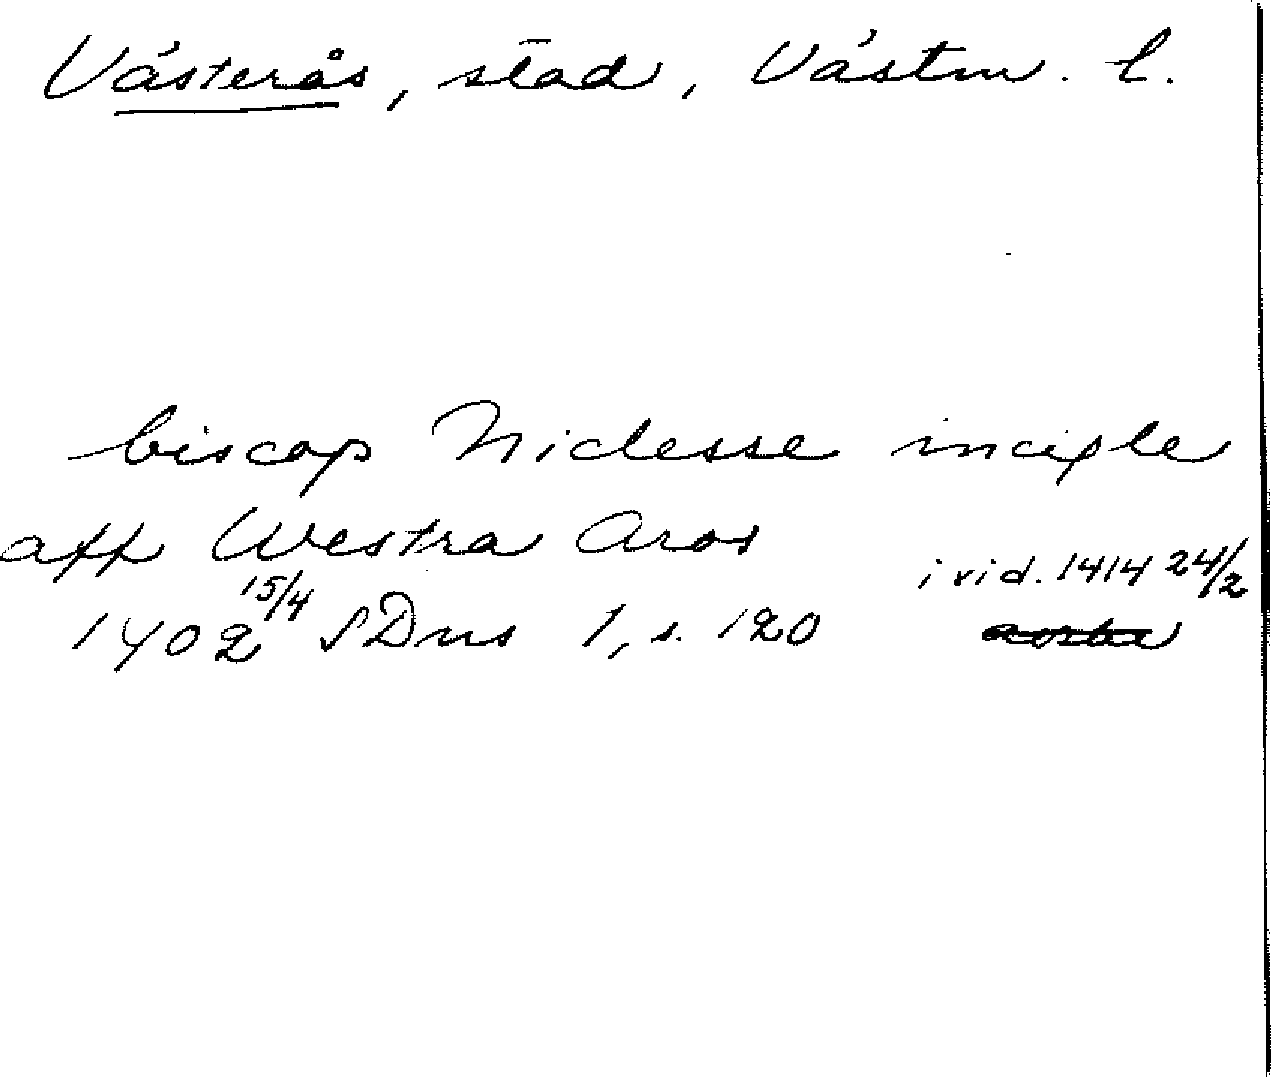 Västerås, stad, Västm. l.
biscop Niclesse incigle
aff Westra Aros
i vid. 1414 24/2
1402 15/4 SDns 1, s. 120